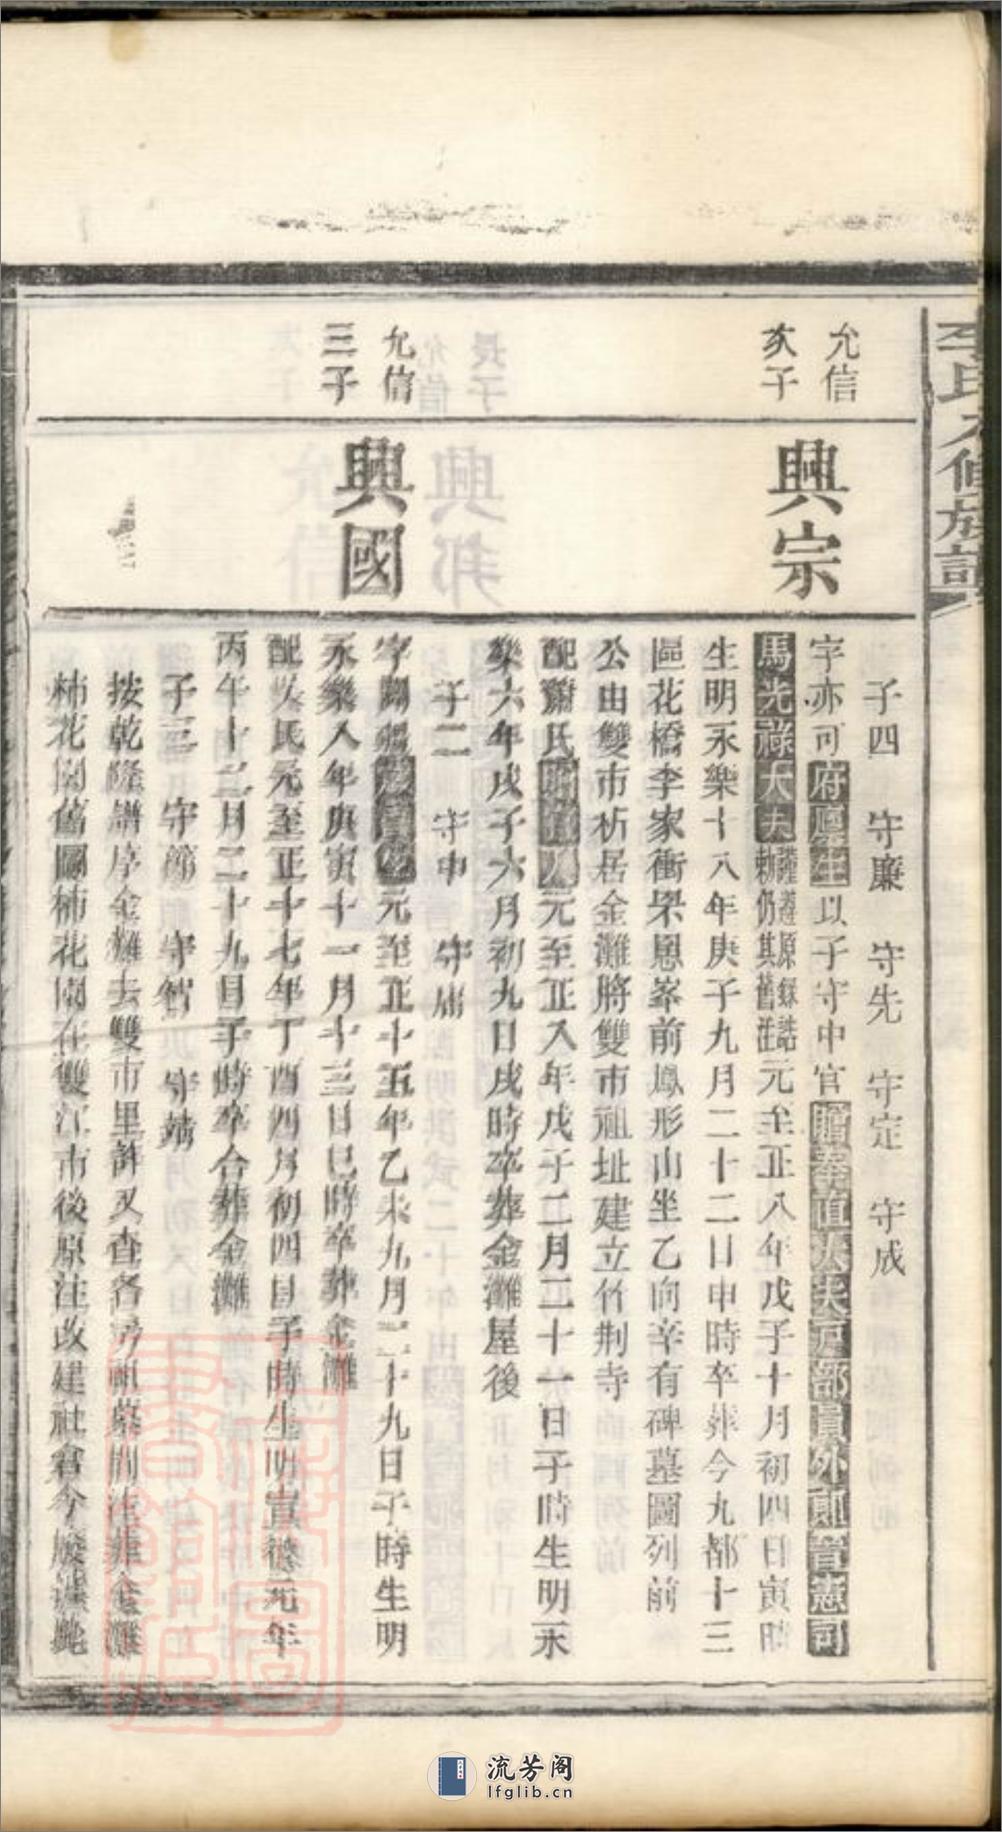 李氏六修族譜
子四 守廉 守先 守定 守成
允信
次子
興宗
字亦可府庠生以子守中官贈奉直大夫戶部員外郎晉憲司
馬光祿大夫謹遵原錄誥勅仍其舊注元至正八年戊子十月初四日寅時
生明永樂十八年庚子九月二十二日申時卒葬今九都十三
區花橋李家衝梁恩峯前鳳形山坐乙向辛有碑墓圖列前
公由雙市析居金灘將雙市祖址建立竹荆寺
配蕭氏贈宜人元至正八年戊子二月二十一日子時生明永
樂六年戊子六月初九日戌時卒葬金灘屋後
子二 守中 守庸
允信
三子
興國
字 元至正十五年乙未九月二十九日子時生明
永樂八年庚寅十一月十三日巳時卒葬金灘
配 氏元至正十七年丁酉四月初四日子時生明宣德元年
丙午十二月二十九日子時卒合葬金灘
子三 守節 守智 守靖
按乾隆譜序金灘去雙市里許又查各房祖墓間注葬金灘
柿花園舊圖柿花園在雙江市後原注改建社倉今廢
流芳阁
lfglib.cn